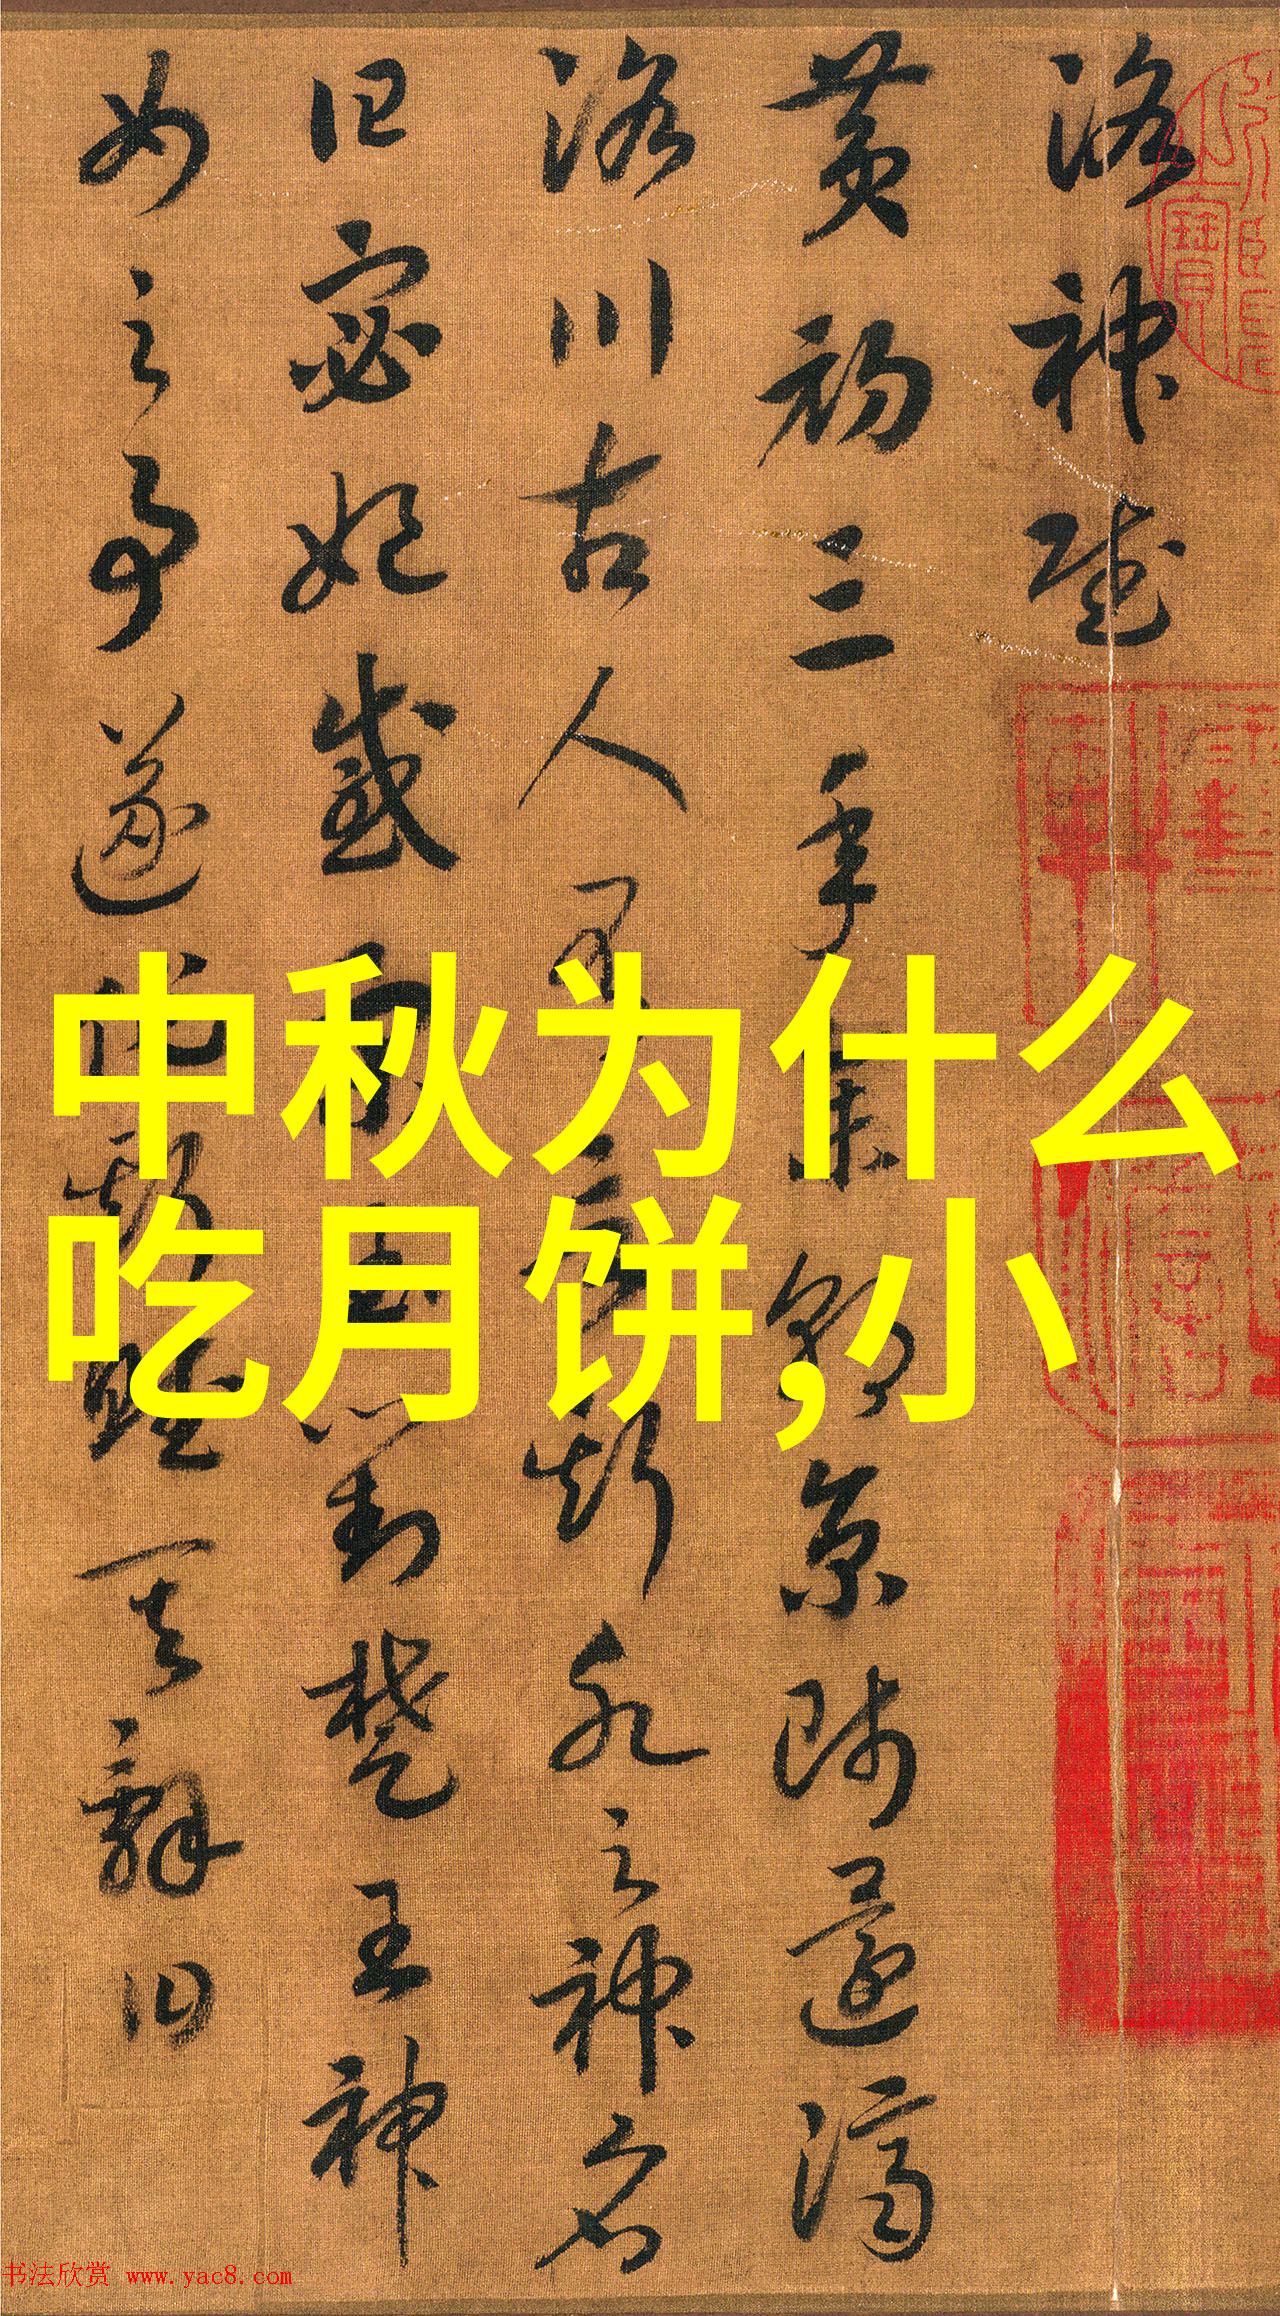 洛神賦
黃初三年余朝京師還濟
洛川古人有言斯水之神名
曰宓妃感宋玉對楚王神
女之事遂作斯賦其辭曰
中秋为什么
吃月饼,小
书法欣赏 www.yac8.com